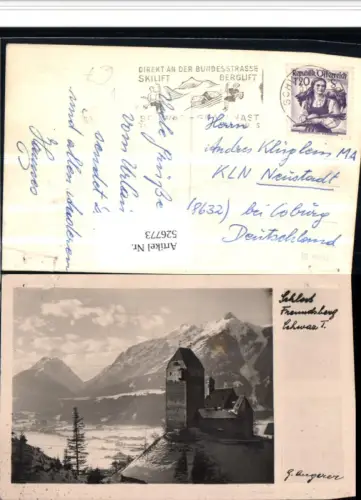 DIREKT AN DER BUNDESSTRASSE
SKILIFT BERGLIFT
Republik Österreich
1.20
SCH
Viele Grüße
vom Urlaub
sendet
und allen anderen
Hannes
Artikel Nr.
526773
Herrn
Andres
KLN Neustadt
(8632) bei Coburg
Deutschland
Schloss
Freundsberg
Schwaz T.
G. Angerer